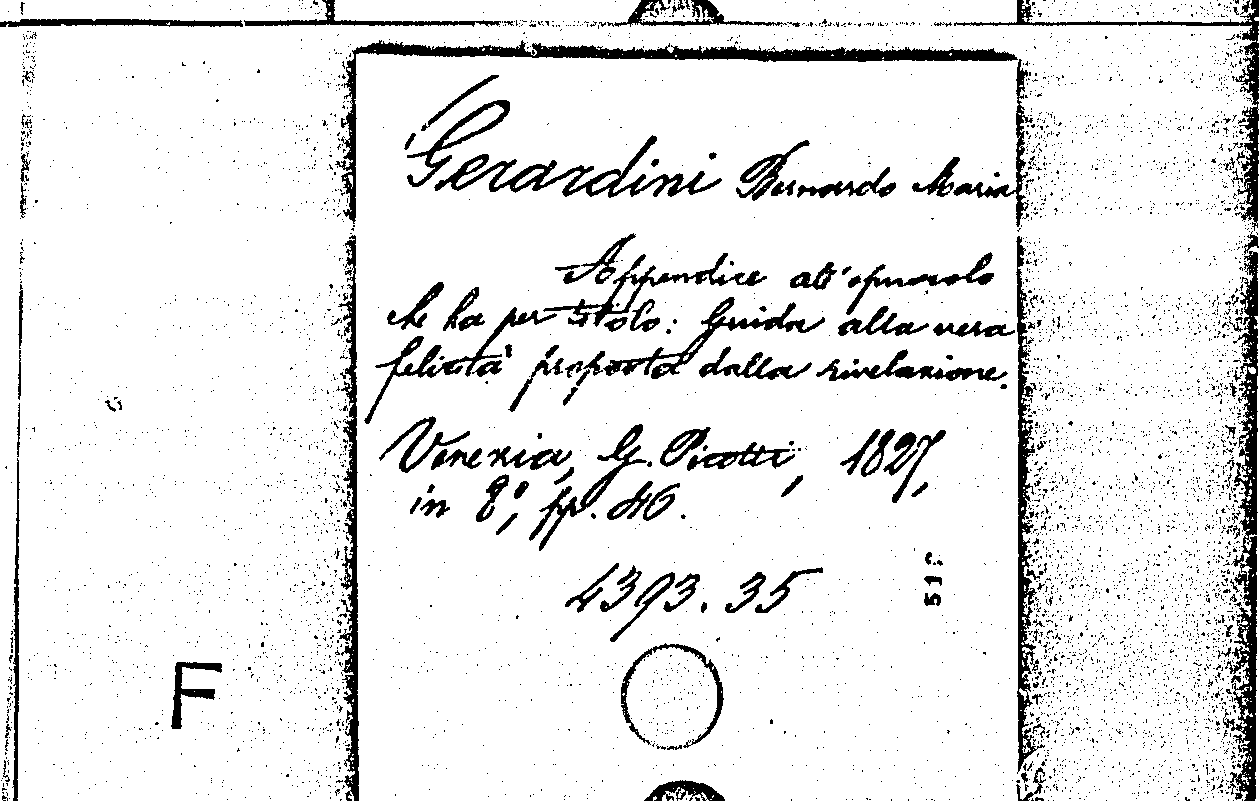 Gerardini Bernardo Maria
Appendice all'opuscolo
che ha per titolo: Guida alla vera
felicità proposta dalla rivelazione.
Venezia, G. Picotti, 1827,
in 8°, pp. 46.
4393.35
F